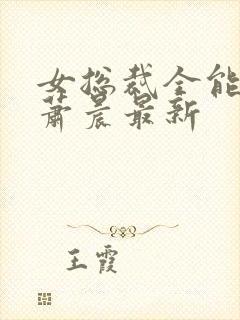 女总裁全能
萧晨最新
王霞